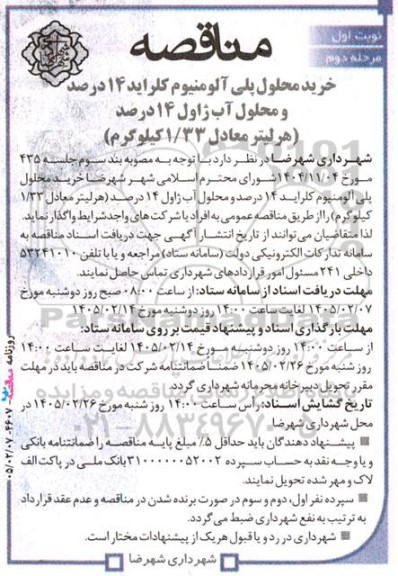 نوبت اول
مرحله دوم
مناقصه
خرید محلول پلی آلومنیوم کلراید ۱۴ درصد
و محلول آب ژاول ۱۴ درصد
(هر لیتر معادل ۱/۳۳ کیلوگرم)
شهرداری شهرضا در نظر دارد با توجه به مصوبه بند سوم جلسه ۴۳۵
مورخ ۱۴۰۴/۱۱/۰۴ شورای محترم اسلامی شهر شهرضا خرید محلول
پلی آلومنیوم کلراید ۱۴ درصد و محلول آب ژاول ۱۴ درصد (هر لیتر معادل ۱/۳۳
کیلوگرم) را از طریق مناقصه عمومی به افراد یا شرکت های واجد شرایط واگذار نماید.
لذا متقاضیان می توانند از تاریخ انتشار آگهی جهت دریافت اسناد مناقصه به
سامانه تدارکات الکترونیکی دولت (سامانه ستاد) مراجعه و یا با تلفن ۵۳۲۴۱۰۱۰
داخلی ۲۴۱ مسئول امور قراردادهای شهرداری تماس حاصل نمایند.
مهلت دریافت اسناد از سامانه ستاد: از ساعت ۰۸:۰۰ صبح روز دوشنبه مورخ
۱۴۰۵/۰۲/۰۷ لغایت ساعت ۱۴:۰۰ روز دوشنبه مورخ ۱۴۰۵/۰۲/۱۴
مهلت بارگذاری اسناد و پیشنهاد قیمت بر روی سامانه ستاد:
از ساعت ۱۴:۰۰ روز دوشنبه مورخ ۱۴۰۵/۰۲/۱۴ لغایت ساعت ۱۴:۰۰
روز شنبه مورخ ۱۴۰۵/۰۲/۲۶ ضمنا ضمانتنامه شرکت در مناقصه باید در مهلت
مقرر تحویل دبیرخانه محرمانه شهرداری گردد.
تاریخ گشایش اسناد: راس ساعت ۱۴:۰۰ روز شنبه مورخ ۱۴۰۵/۰۲/۲۶ در
محل شهرداری شهرضا
پیشنهاد دهندگان باید حداقل ۵٪ مبلغ پایه مناقصه را ضمانتنامه بانکی
و یا وجه نقد به حساب سپرده ۳۱۰۰۰۰۰۰۵۲۰۰۲ بانک ملی در پاکت الف
لاک و مهر شده تحویل نمایند.
سپرده نفر اول، دوم و سوم در صورت برنده شدن در مناقصه و عدم عقد قرارداد
به ترتیب به نفع شهرداری ضبط می گردد.
شهرداری در رد و یا قبول هر یک از پیشنهادات مختار است.
شهرداری شهرضا
۰۲۱-۸۸۳۴۹۶۷۰-۵